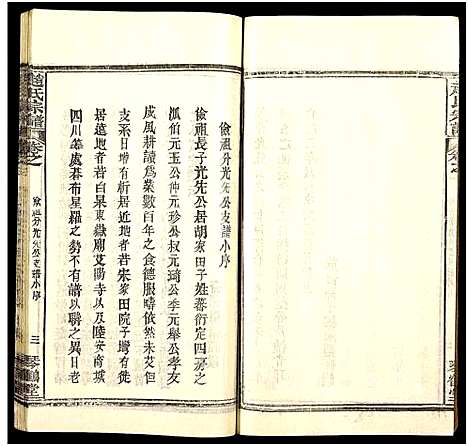 儉祖分光先公支譜小序
儉祖長子光先公居胡家田子姓蕃衍定四房之
派伯元玉公仲元珍公叔元琦公季元舉公孝友
成風耕讀為業數百年之食德服疇依然未艾但
支系日增有析居近地者若宋家田院子塆有徙
居遠地者若白杲東嶽廟艾陽寺以及陸安商城
四川等處碁布星羅之勢不有譜以聯之異日老
趙氏宗譜
卷之
儉祖分光先公支譜小序
三
琴鶴堂